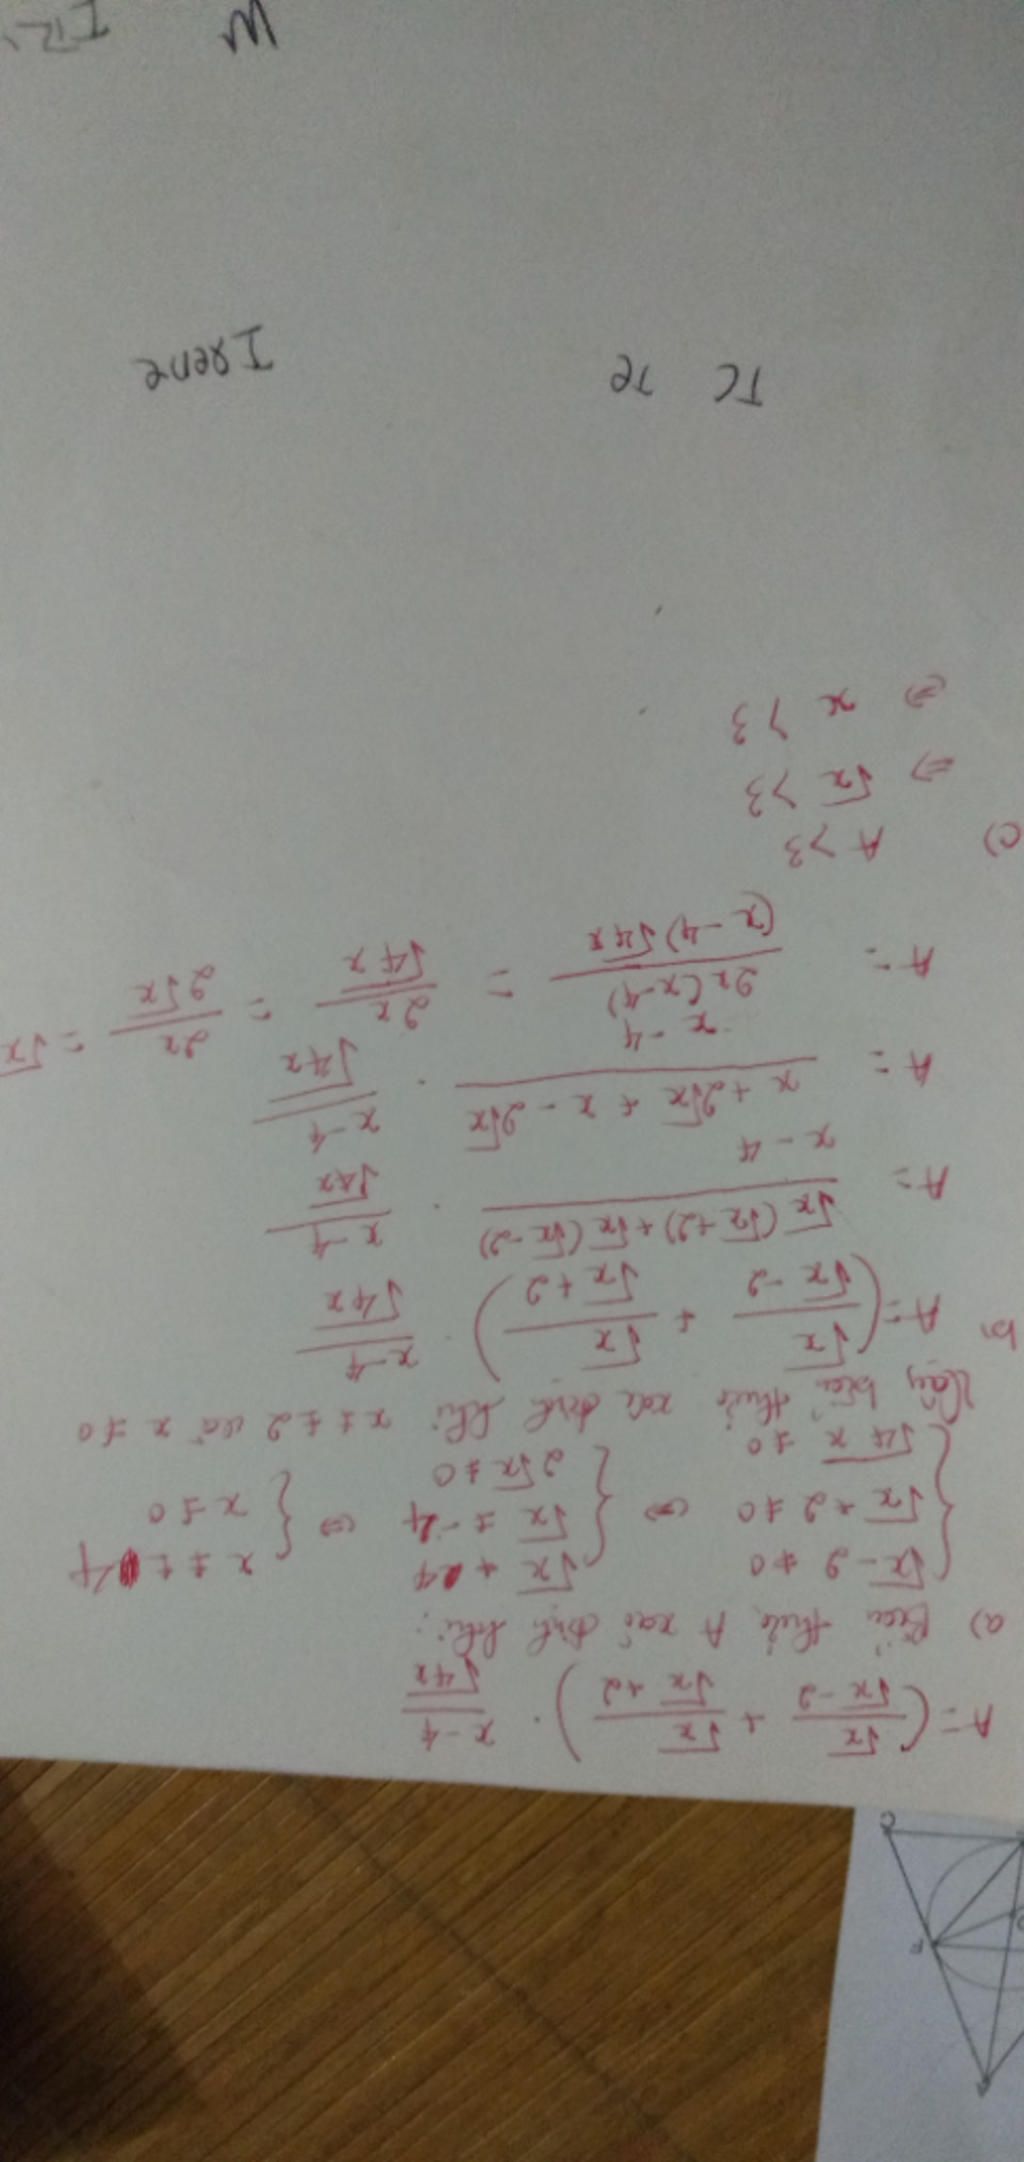 A = (√x/(√x - 2) + √x/(√x + 2)) . (x - 4)/√4x
a) thức A xác định khi:
{ √x - 2 ≠ 0 { √x ≠ 4 { x ≠ ± 4
√x + 2 ≠ 0 ⇔ √x ≠ -4 ⇔ x ≠ 0
√4x ≠ 0 2√x ≠ 0
Vậy thức xác định khi x ≠ ± 2 và x ≠ 0
b) A = (√x/(√x - 2) + √x/(√x + 2)) . (x - 4)/√4x
A = (√x(√x + 2) + √x(√x - 2))/(x - 4) . (x - 4)/√4x
A = (x + 2√x + x - 2√x)/(x - 4) . (x - 4)/√4x
A = 2x(x - 4)/((x - 4)√4x) = 2x/√4x = 2x/2√x = √x
c) A > 3
⇒ √x > 3
⇒ x > 3
TC Te Irene
M